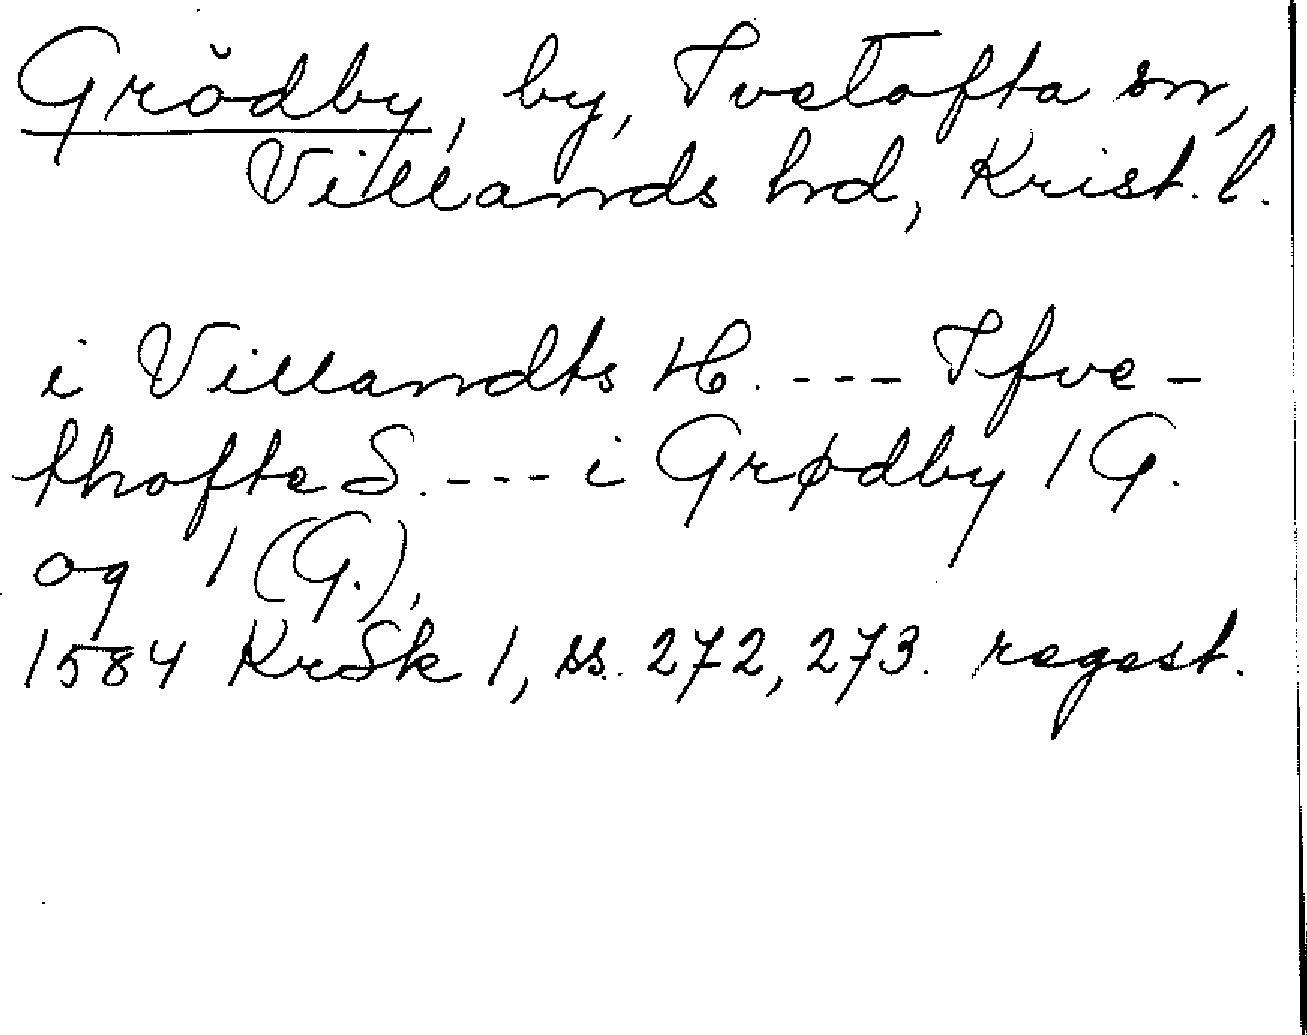 Grödby, by, Tvetofta sn,
Villands hd, Krist. l.
i Villandts H. --- Tfve-
thofte S. --- i Grødby 1 G.
og 1 (G.),
1584 KrSk 1, ss. 272, 273. regest.